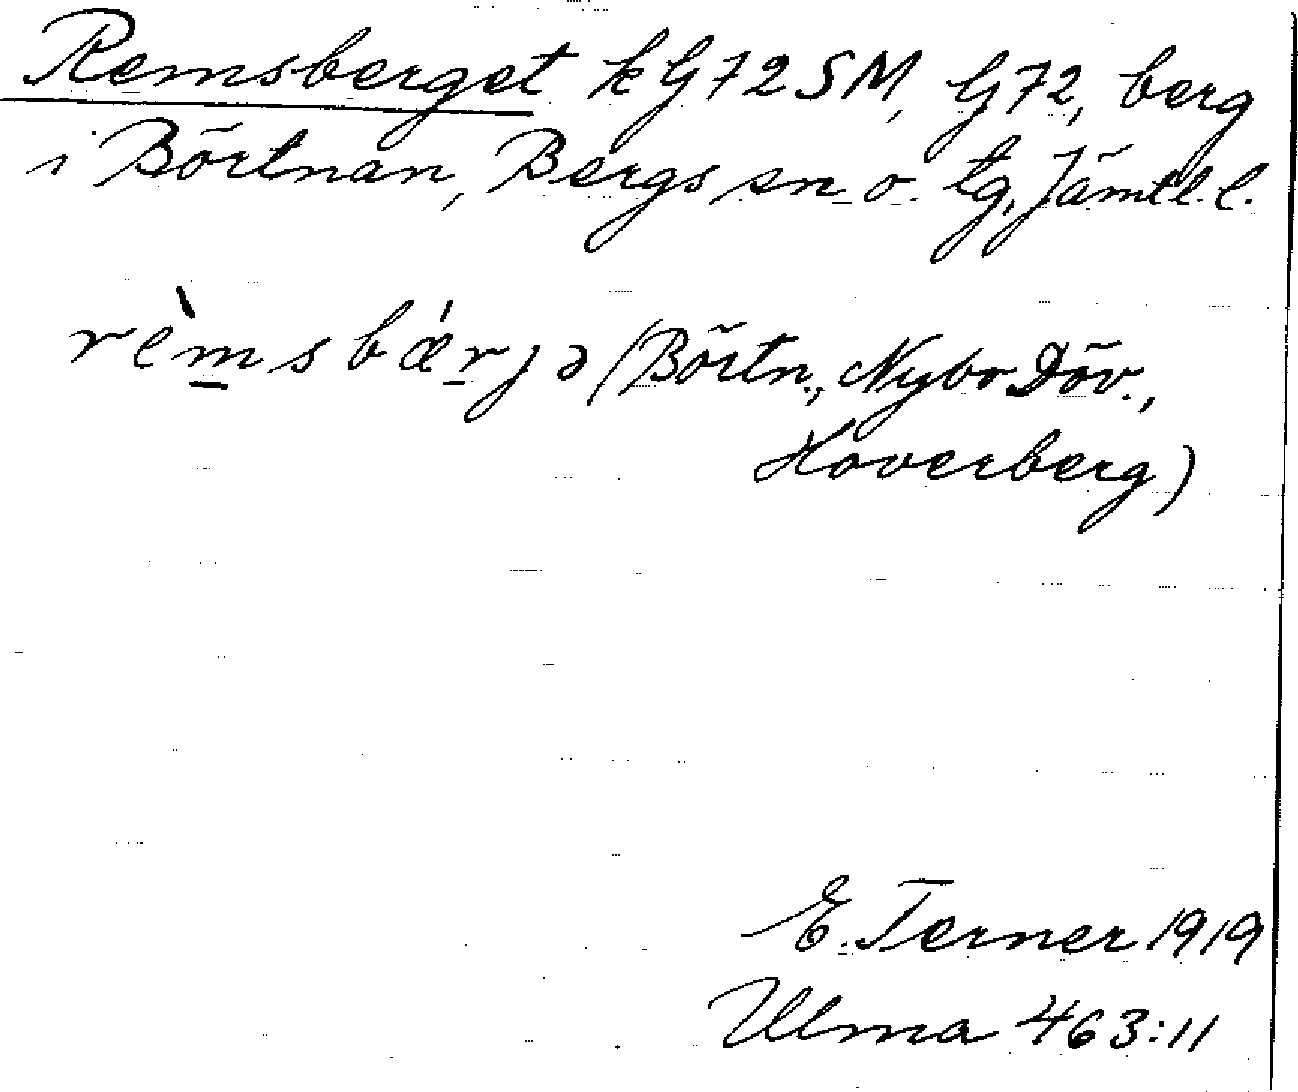 Remsberget k G72SM, G72, berg
i Börtnan, Bergs sn o. tg, Jämtl. l.
rèm̲sbǽr̲jə (Börtn., Nybo Döv.,
Hoverberg)
E. Terner 1919
Ulma 463:11